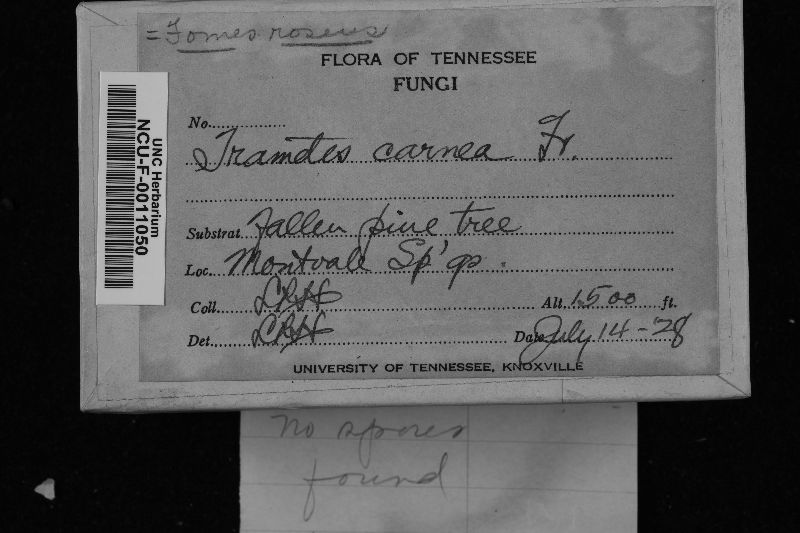 = Fomes roseus
FLORA OF TENNESSEE
FUNGI
No.
Trametes carnea Fr.
Substrat. fallen pine tree
Loc. Montvale Sp'gs
Coll. LRH Alt. 1500 ft.
Det. LRH Date July 14-28
UNIVERSITY OF TENNESSEE, KNOXVILLE
UNC Herbarium
NCU-F-0011050
no spores
found